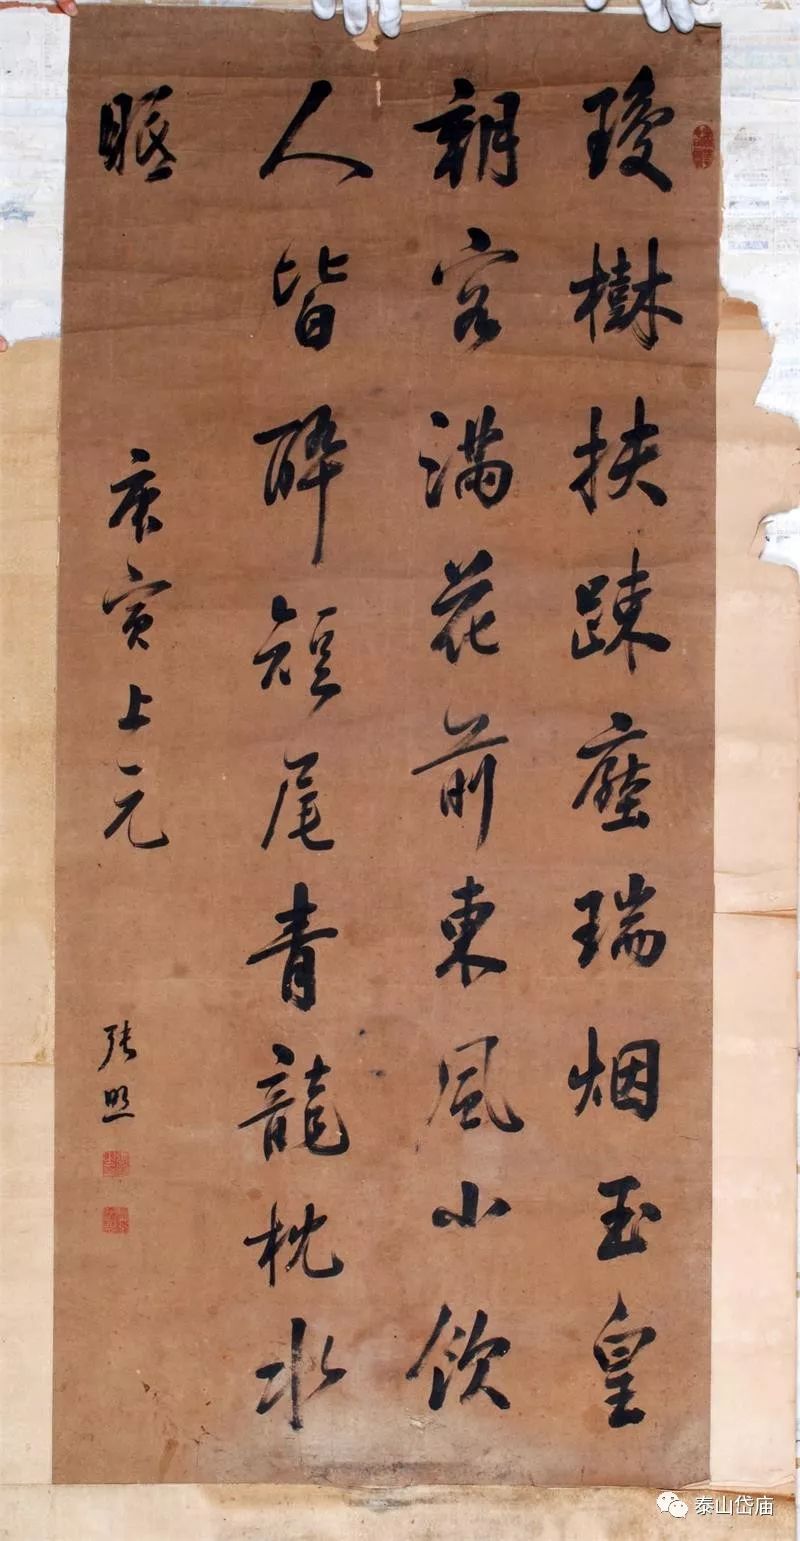 瓊樹扶疎壓瑞烟玉皇
朝客滿花前東風小飲
人皆醉短尾青龍枕水
眠
庚寅上元
張照
泰山岱庙